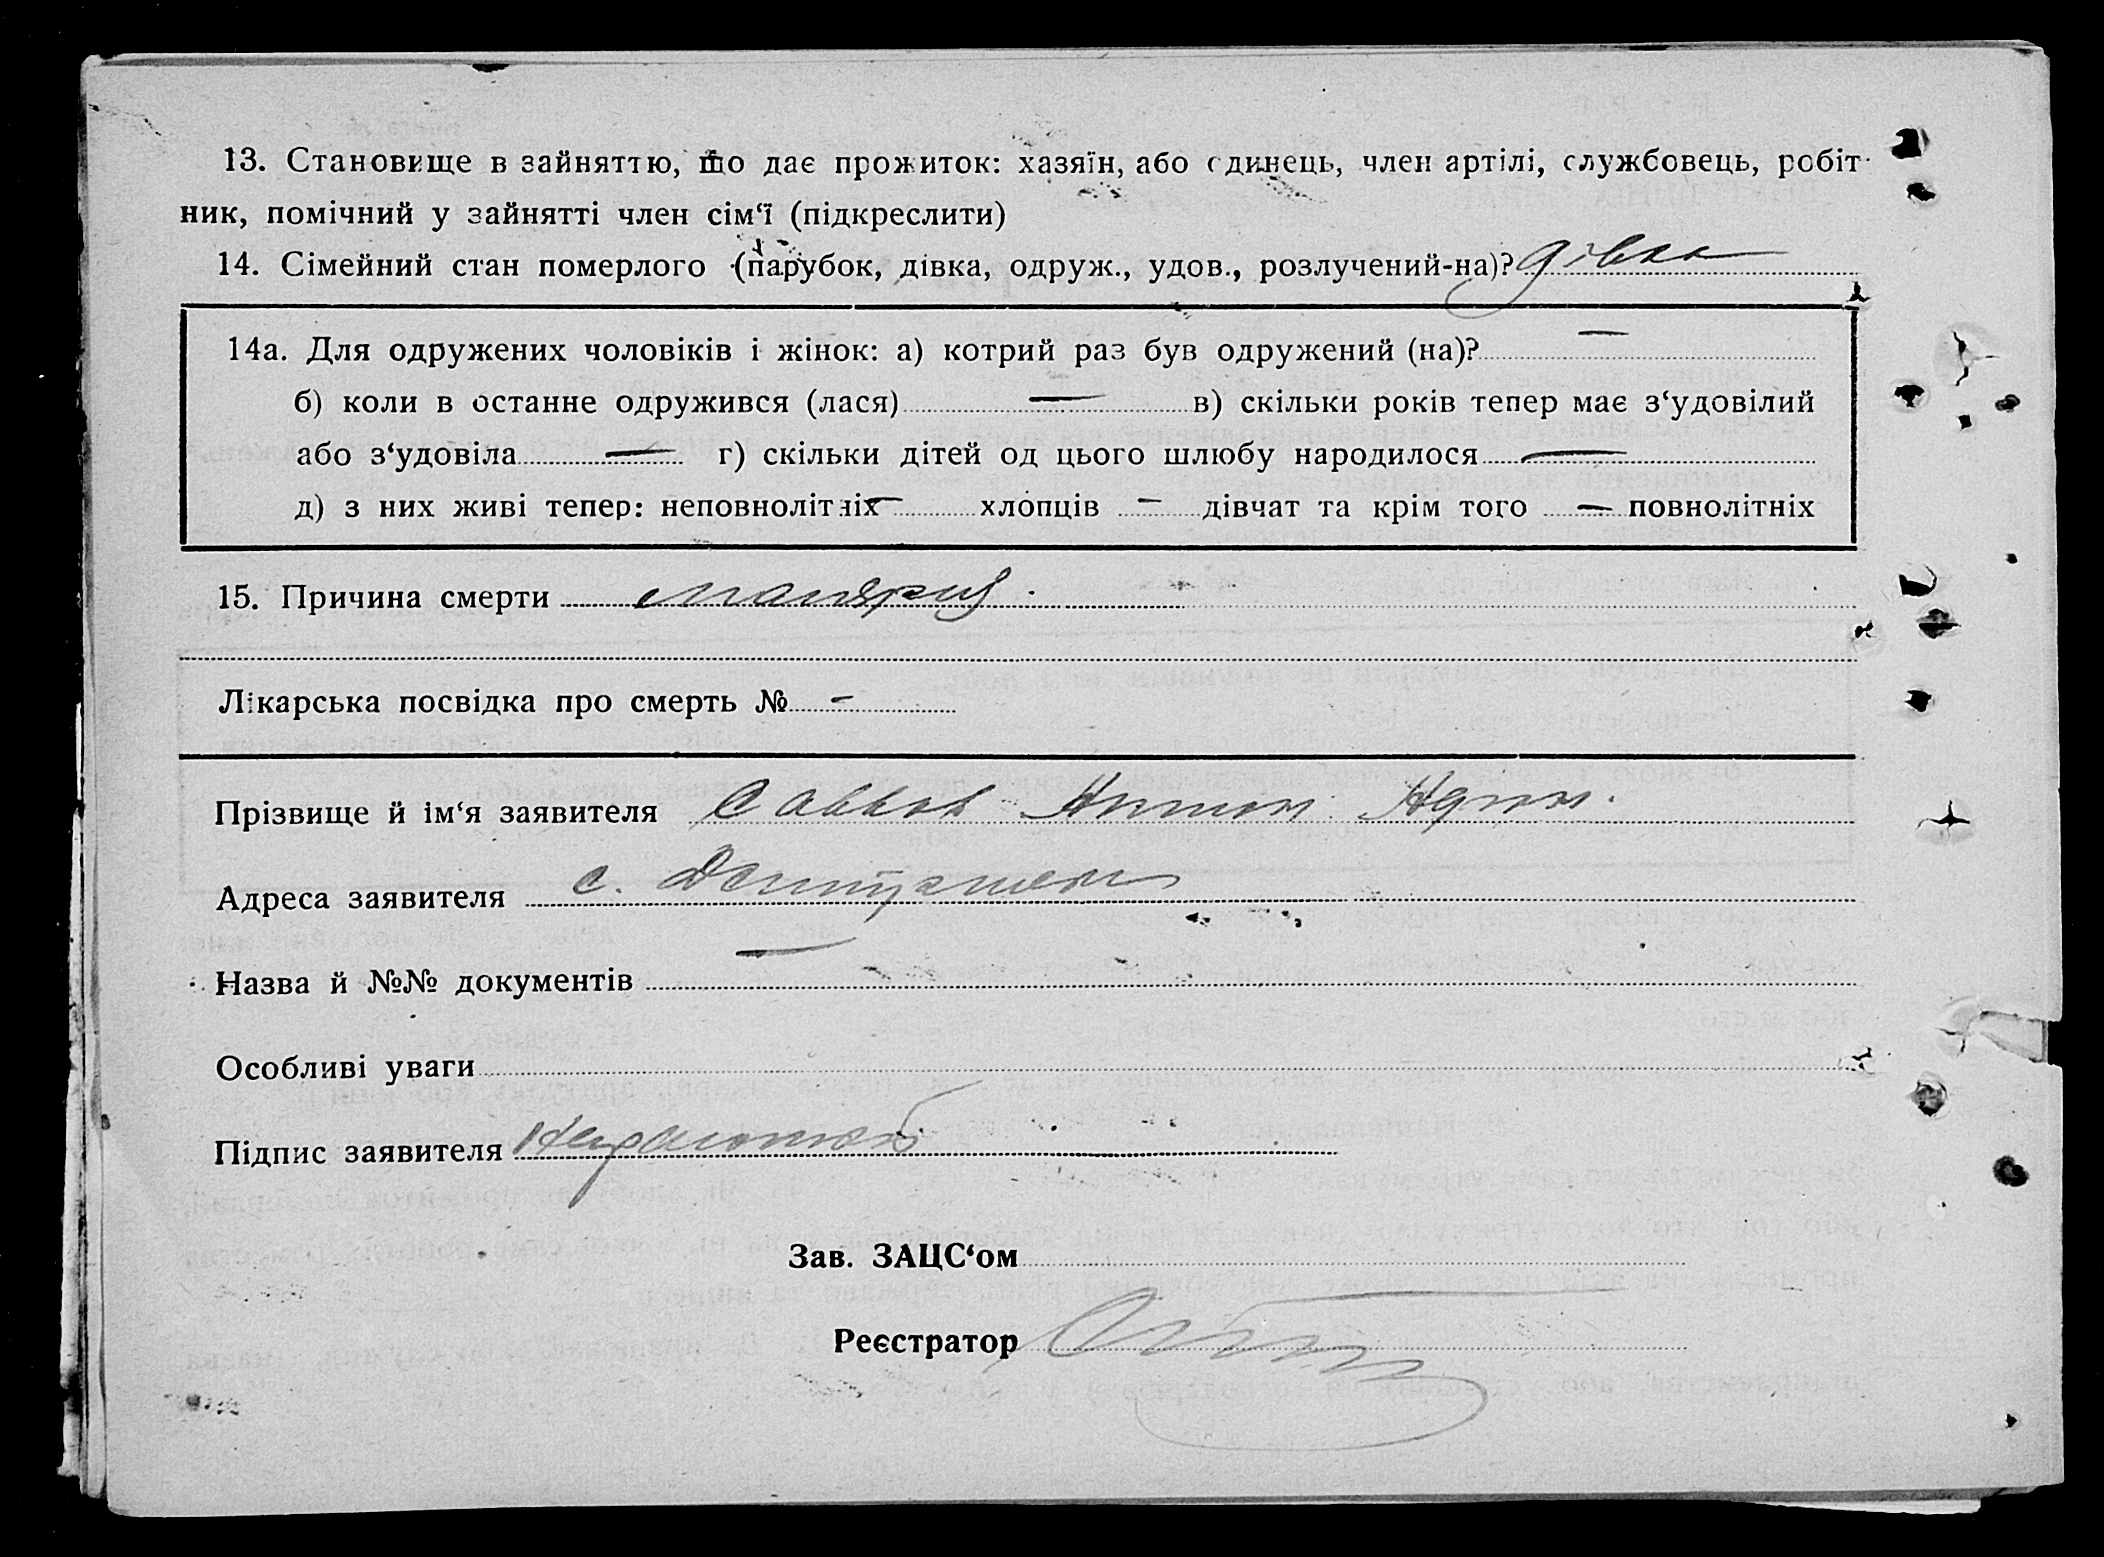 13. Становище в зайняттю, що дає прожиток: хазяїн, або єдинець, член артілі, службовець, робіт-
ник, помічний у зайнятті член сім‘ї (підкреслити)
14. Сімейний стан померлого (парубок, дівка, одруж., удов., розлучений-на)? дівка
14а. Для одружених чоловіків і жінок: а) котрий раз був одружений (на)? —
б) коли в останне одружився (лася) — в) скільки років тепер має з‘удовілий
або з‘удовіла — г) скільки дітей од цього шлюбу народилося —
д) з них живі тепер: неповнолітніх — хлопців — дівчат та крім того — повнолітніх
15. Причина смерти малярия
Лікарська посвідка про смерть № -
Прізвище й ім‘я заявителя Савков Антон
Адреса заявителя с.
Назва й №№ документів —
Особливі уваги
Підпис заявителя
Зав. ЗАЦС‘ом
Реєстратор